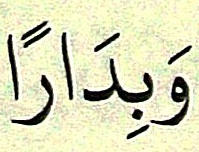 وَبِدَارًا